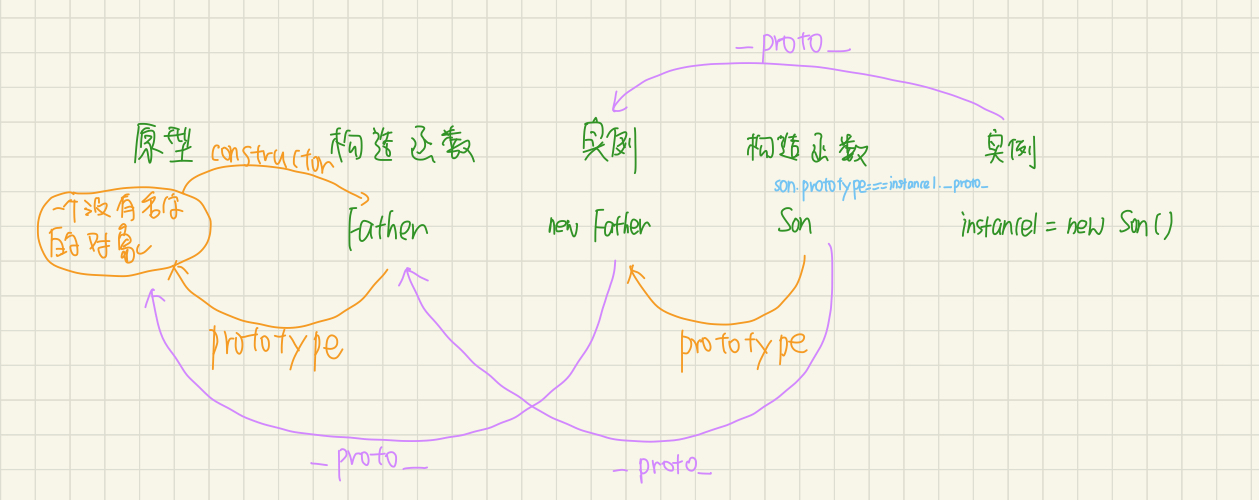 _proto_
原型
constructor
构造函数
实例
构造函数
实例
son.prototype===instance1._proto_
一个没有名字
的对象
Father
new Father
Son
instance1 = new Son()
prototype
prototype
_proto_
_proto_